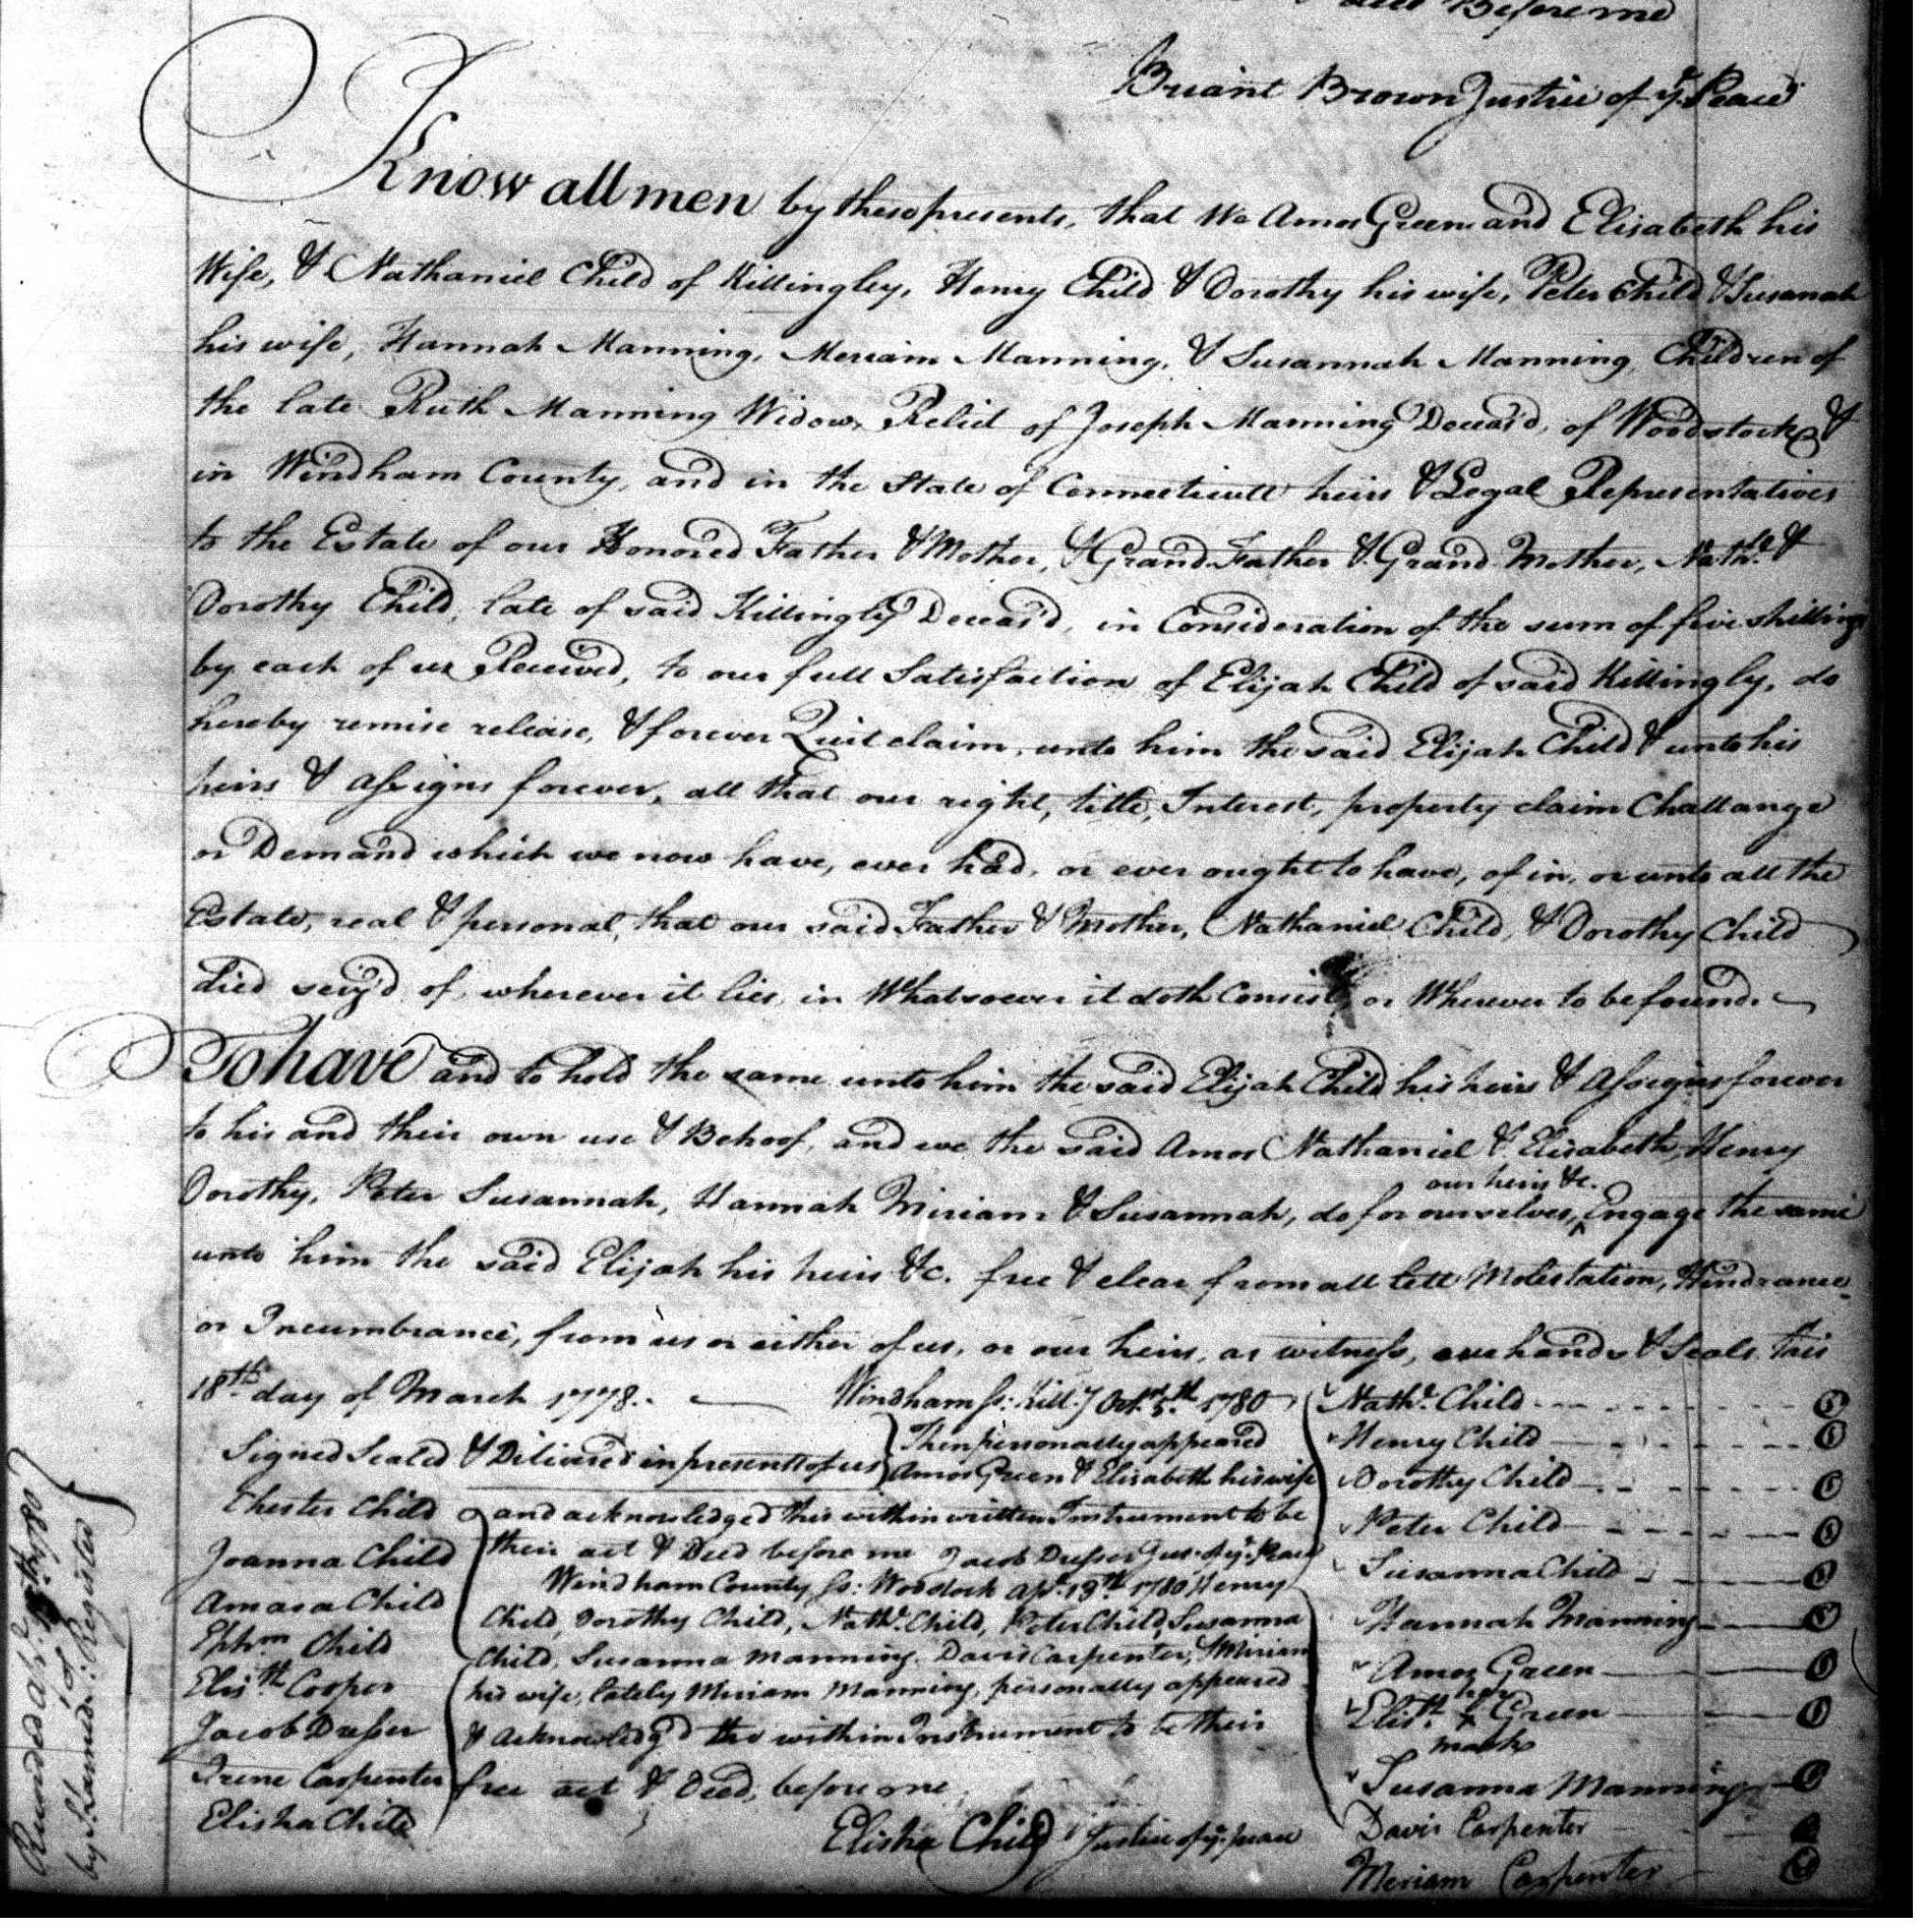 and Before me
Briant Brown Justice of ye. Peace
Know all men by these presents, that We Amos Green and Elisabeth his
Wife, & Nathaniel Child of Killingley, Henry Child & Dorothy his wife, Peter Child & Susanah
his wife, Hannah Manning, Meriam Manning, & Susannah Manning Children of
the late Ruth Manning Widow, Relict of Joseph Manning Deceas'd, of Woodstock &
in Windham County, and in the State of Connecticutt heirs & Legal Representatives
to the Estate of our Honored Father & Mother, & Grand Father & Grand Mother, Nathll. &
Dorothy Child, late of said Killingly Deceas'd, in Consideration of the sum of five shillings
by each of us Received, to our full Satisfaction of Elijah Child of said Killingly, do
hereby remise release, & forever Quitclaim, unto him the said Elijah Child & unto his
heirs & assigns forever, all that our right, title, Interest, property claim Challange
or Demand which we now have, ever had, or ever ought to have, of in, or unto all the
Estate, real & personal, that our said Father & Mother, Nathaniel Child, & Dorothy Child
died seiz'd of, wherever it lies, in Whatsoever it doth Consist, or Wherever to be found.
To have and to hold the same unto him the said Elijah Child his heirs & Assigns forever
to his and their own use & Behoof, and we the said Amos Nathaniel & Elisabeth, Henry
Dorothy, Peter Susannah, Hannah Miriam & Susannah, do for ourselves, our heirs &c. Engage the same
unto him the said Elijah his heirs &c. free & clear from all lett Molestation, Hindrance
or Incumbrance, from us or either of us, or our heirs, as witness, our hands & Seals this
18th day of March 1778.
Signed Sealed & Delivered in presents of us
Chester Child
Joanna Child
Amasa Child
Ephm Child
Elisth Cooper
Jacob Dresser
Irene Carpenter
Elisha Child
Windham Ss: Kill.y Oct. 5th 1780
Then personally appeared
Amos Green & Elisabeth his wife
and acknowledged this within written Instrument to be
their act & Deed before me Jacob Dresser Jus. of ye. Peace
Windham County Ss: Woodstock Apl. 13th 1780 Henry
Child, Dorothy Child, Nathl. Child, Peter Child, Susanna
Child, Susanna Manning, Davis Carpenter, & Miriam
his wife, lately Miriam Manning, personally appeared
& Acknowledg'd the within Instrument to be their
free act & Deed, before me
Elisha Child Justice of ye. peace
Nathl. Child
Henry Child
Dorothy Child
Peter Child
Susanna Child
Hannah Manning
Amos Green
her
Elisth. + Green
mark
Susanna Manning
Davis Carpenter
Meriam Carpenter
1780
by Register